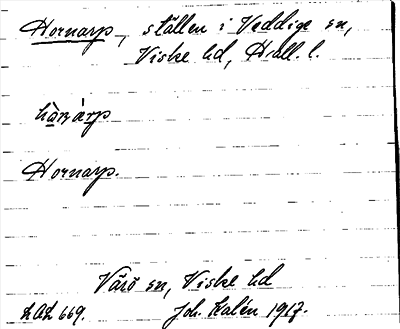 Hornarp, ställen i Veddige sn,
Viske hd, Hall. l.
Hornarp.
Värö sn, Viske hd
LAL 669. Joh. Kalén 1917.